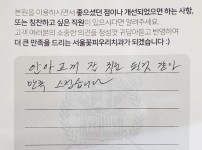 본원을 이용하시면서 좋으셨던 점이나 개선되었으면 하는 사항,
또는 칭찬하고 싶은 직원이 있으시다면 알려주세요.
고객 여러분의 소중한 의견을 정성껏 귀담아듣고 반영하여
더 큰 만족을 드리는 서울꽃피우리치과가 되겠습니다 :)
안아프게 잘 치료 된것 같아
만족 스럽습니다